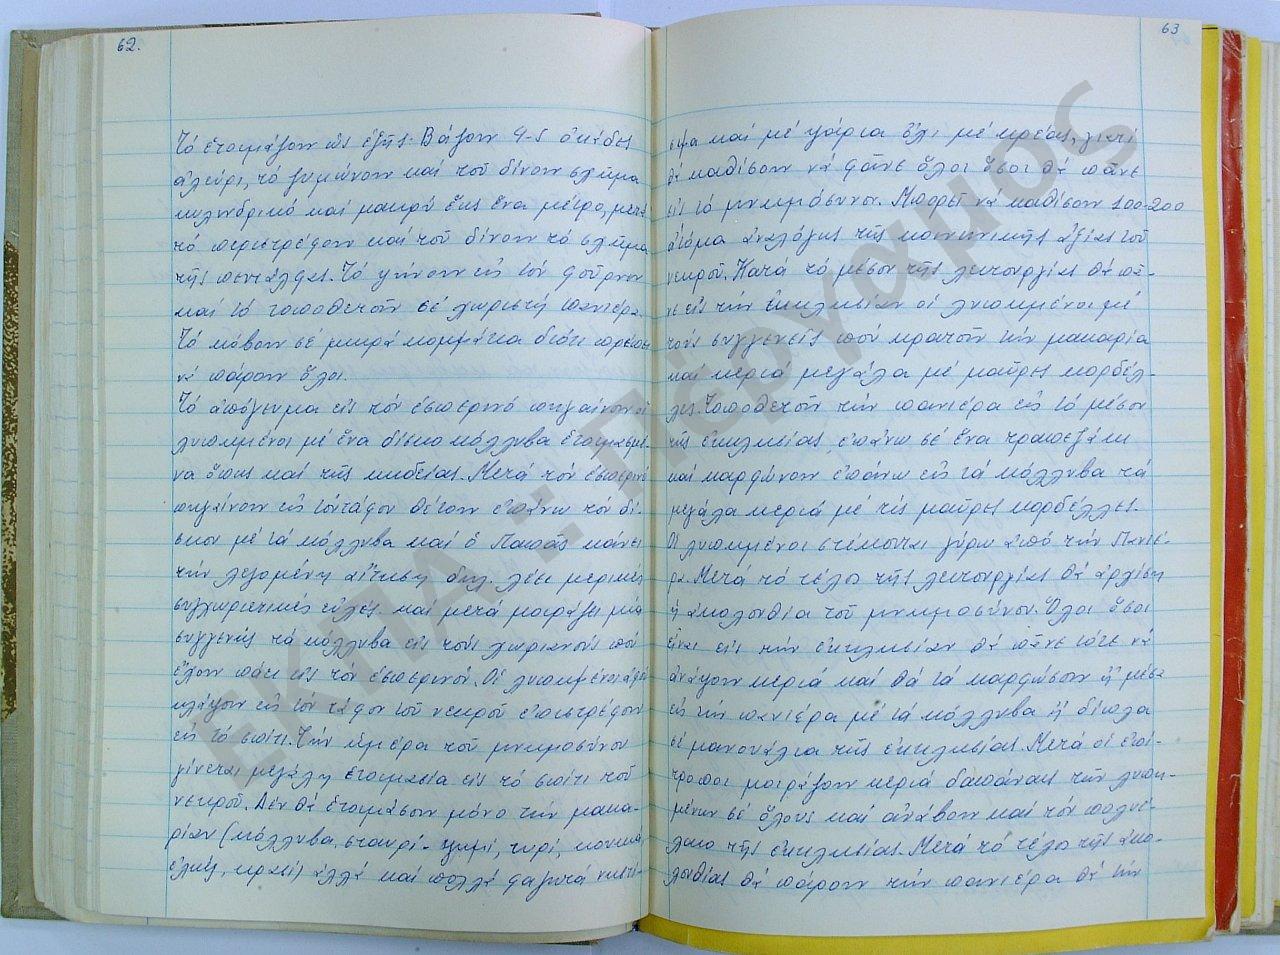 62.
Τό ἑτοιμάζουν ὡς ἑξῆς. Βάζουν 4-5 ὀκάδες
ἀλεύρι, τό ζυμώνουν καί τοῦ δίνουν σχῆμα
κυλινδρικό καί μακρύ ἕως ἕνα μέτρο, μετά
τό περιστρέφουν καί τοῦ δίνουν τό σχῆμα
τῆς πεντάλφας. Τό ψήνουν εἰς τόν φοῦρνον
καί τό τοποθετοῦν σέ χωριστή πανιέρα.
Τό κόβουν σέ μικρά κομμάτια διότι πρέπει
νά πάρουν ὅλοι.
Τό ἀπόγευμα εἰς τόν ἑσπερινό πηγαίνουν οἱ
λυπημένοι μέ ἕνα δίσκο κόλλυβα ἑτοιμασμέ-
να ὅπως καί τῆς κηδείας. Μετά τόν ἑσπερινό
πηγαίνουν εἰς τόν τάφον θέτουν ἐπάνω τόν δί-
σκον μέ τά κόλλυβα καί ὁ Παπᾶς κάνει
τήν λεγομένη αἴτηση δηλ. λέει μερικές
συγχωρετικές εὐχές καί μετά μοιράζει μιά
συγγενής τά κόλλυβα εἰς τούς χωριανούς πού
ἔχουν πάει εἰς τόν ἑσπερινόν. Οἱ λυπημένοι ἀφοῦ
κλάψουν εἰς τόν τάφον τοῦ νεκροῦ ἐπιστρέφουν
εἰς τό σπίτι. Τήν ἡμέρα τοῦ μνημοσύνου
γίνεται μεγάλη ἑτοιμασία εἰς τό σπίτι τοῦ
νεκροῦ. Δέν θά ἑτοιμάσουν μόνο τήν μακα-
ρίαν (κόλλυβα, σταυρί-ψωμί, τυρί, κουκιά
ἐλιές, κρασί) ἀλλά καί πολλά φαγητά νηστί-
63
σιμα καί μέ ψάρια ὄχι μέ κρέας, γιατί
θά καθίσουν νά φᾶνε ὅλοι ὅσοι θά πᾶνε
εἰς τό μνημόσυνον. Μπορεῖ νά καθίσουν 100-200
ἄτομα ἀναλόγως τῆς κοινωνικῆς ἀξίας τοῦ
νεκροῦ. Κατά τό μέσον τῆς λειτουργίας θά πᾶ-
νε εἰς τήν ἐκκλησίαν οἱ λυπημένοι μέ
τούς συγγενεῖς πού κρατοῦν τήν μακαρία
καί κεριά μεγάλα μέ μαῦρες κορδέλ-
λες. Τοποθετοῦν τήν πανιέρα εἰς τό μέσον
τῆς ἐκκλησίας, ἐπάνω σέ ἕνα τραπεζάκι
καί καρφώνουν ἐπάνω εἰς τά κόλλυβα τά
μεγάλα κεριά μέ τίς μαῦρες κορδέλλες.
Οἱ λυπημένοι στέκονται γύρω ἀπό τήν Πανιέ-
ρα. Μετά τό τέλος τῆς λειτουργίας θά ἀρχίση
ἡ ἀκολουθία τοῦ μνημοσύνου. Ὅλοι ὅσοι
εἶναι εἰς τήν ἐκκλησίαν θά πᾶνε τότε νά
ἀνάψουν κεριά καί θά τά καρφώσουν ἤ μέσα
εἰς τήν πανιέρα μέ τά κόλλυβα ἤ δίπλα
σέ μανουάλια τῆς ἐκκλησίας. Μετά οἱ ἐπί-
τροποι μοιράζουν κεριά δαπάναις τῶν λυπη-
μένων σέ ὅλους καί ἀνάβουν καί τόν πολυέ-
λαιο τῆς ἐκκλησίας. Μετά τό τέλος τῆς ἀκο-
λουθίας θά πάρουν τήν πανιέρα θά τήν
ΕΚΠΑ : Πέργαμος